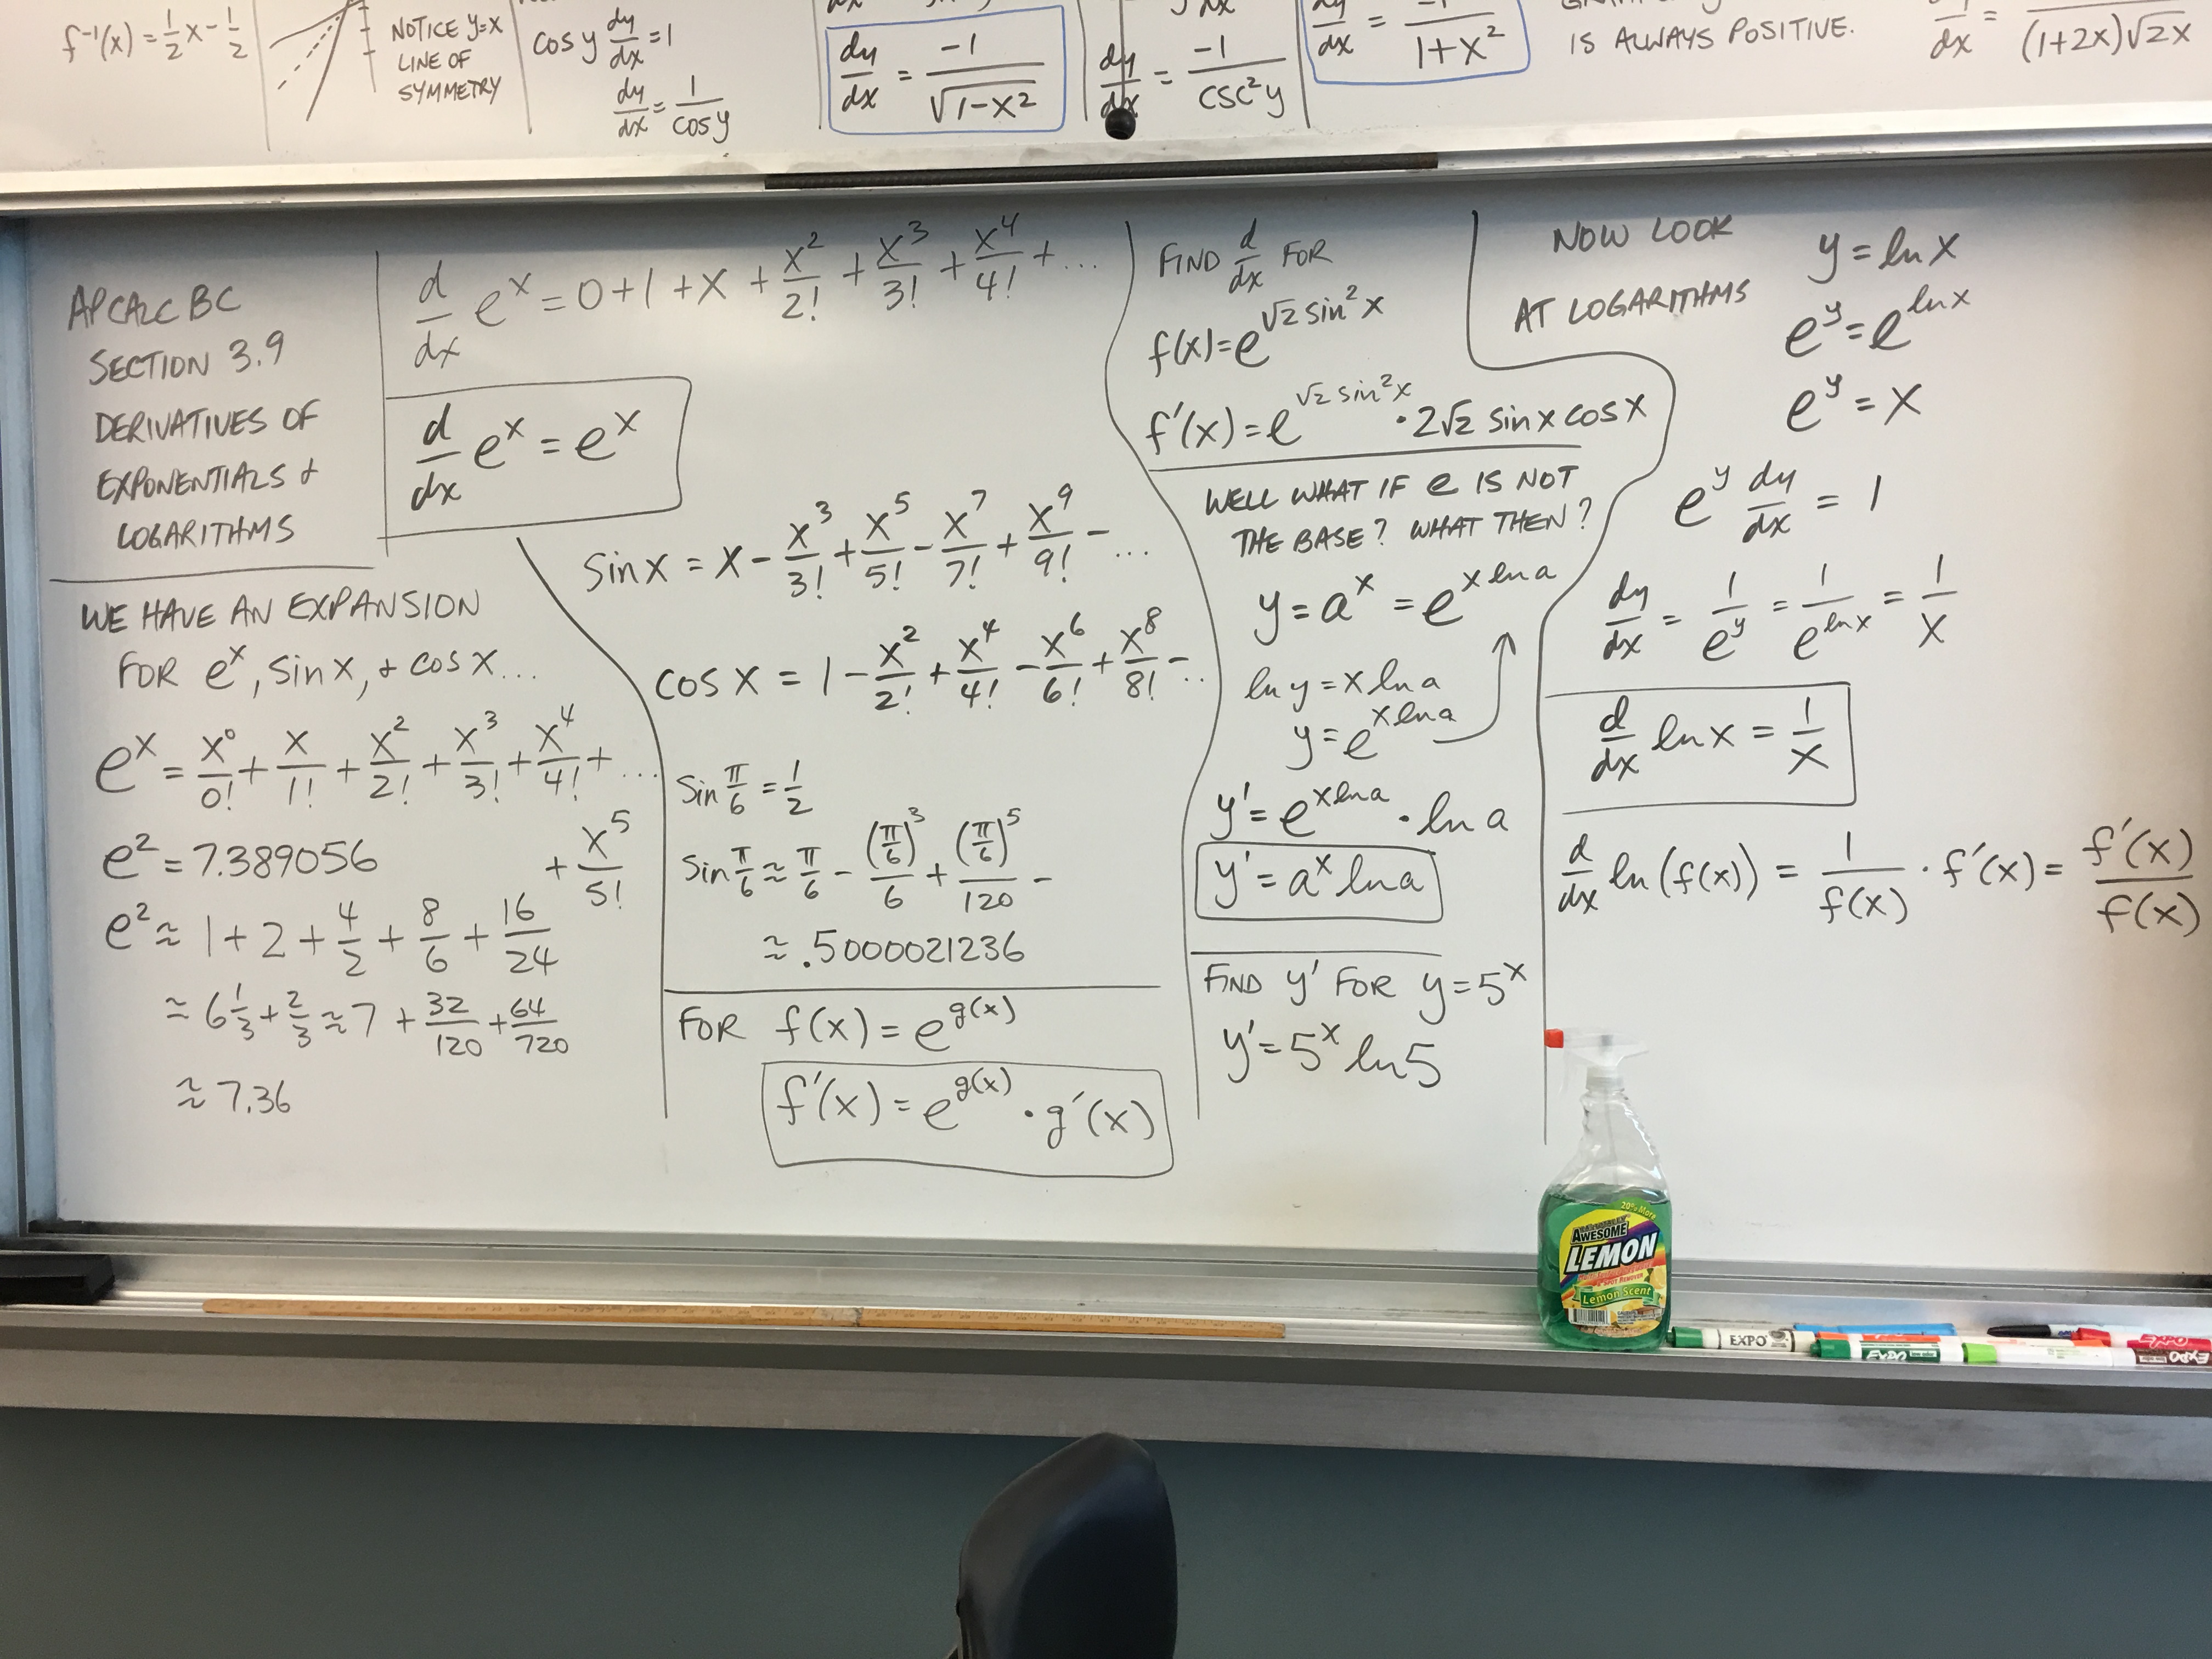 f⁻¹(x) = 1/2 x - 1/2
NOTICE y=x
LINE OF
SYMMETRY
cos y dy/dx = 1
dy/dx = 1/cos y
dy/dx = -1/√(1-x²)
dy/dx = -1/csc²y
dy/dx = -1/(1+x²)
IS ALWAYS POSITIVE.
dy/dx = /(1+2x)√2x
AP CALC BC
SECTION 3.9
DERIVATIVES OF
EXPONENTIALS &
LOGARITHMS
WE HAVE AN EXPANSION
FOR eˣ, sin x, & cos x...
eˣ = x⁰/0! + x/1! + x²/2! + x³/3! + x⁴/4! + ...
+ x⁵/5!
e² = 7.389056
e² ≈ 1 + 2 + 4/2 + 8/6 + 16/24
≈ 6 1/3 + 2/3 ≈ 7 + 32/120 + 64/720
≈ 7.36
d/dx eˣ = 0 + 1 + x + x²/2! + x³/3! + x⁴/4! + ...
d/dx eˣ = eˣ
sin x = x - x³/3! + x⁵/5! - x⁷/7! + x⁹/9! - ...
cos x = 1 - x²/2! + x⁴/4! - x⁶/6! + x⁸/8! - ..
sin π/6 = 1/2
sin π/6 ≈ π/6 - (π/6)³/6 + (π/6)⁵/120 -
≈ .5000021236
FOR f(x) = e^g(x)
f'(x) = e^g(x) · g'(x)
FIND d/dx FOR
f(x) = e^(√2 sin²x)
f'(x) = e^(√2 sin²x) · 2√2 sin x cos x
WELL WHAT IF e IS NOT
THE BASE? WHAT THEN?
y = aˣ = e^(x ln a)
ln y = x ln a
y = e^(x ln a)
y' = e^(x ln a) · ln a
y' = aˣ ln a
FIND y' FOR y = 5ˣ
y' = 5ˣ ln 5
NOW LOOK
AT LOGARITHMS
y = ln x
e^y = e^(ln x)
e^y = x
e^y dy/dx = 1
dy/dx = 1/e^y = 1/e^(ln x) = 1/x
d/dx ln x = 1/x
d/dx ln(f(x)) = 1/f(x) · f'(x) = f'(x)/f(x)
20% More
AWESOME
LEMON
Lemon Scent
EXPO
EXPO
EXPO
EXPO